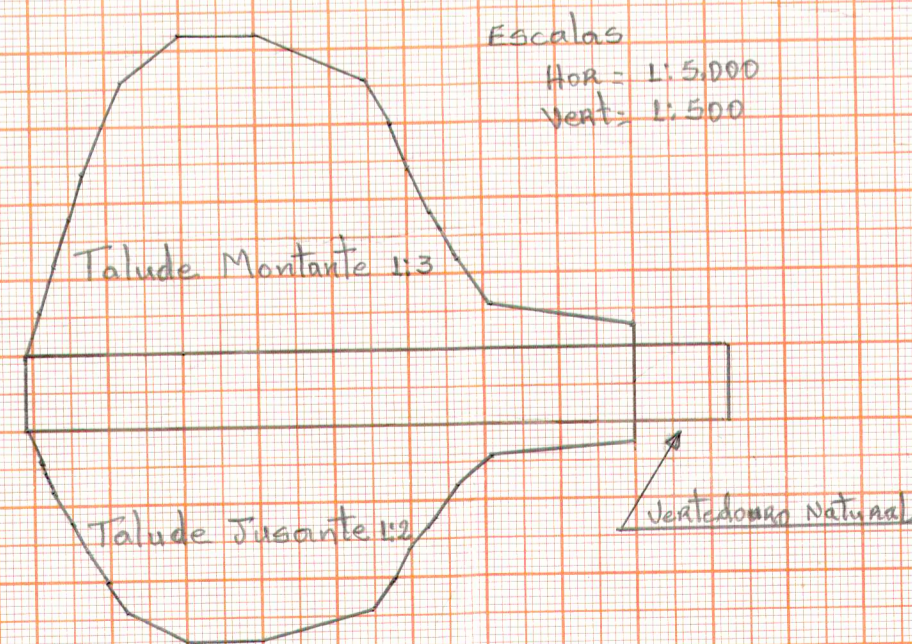 Escalas
HOR = 1: 5.000
Vert = 1: 500
Talude Montante 1:3
Talude Jusante 1:2
Vertedouro Natural